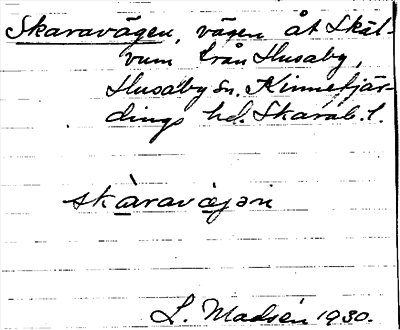 Skaravägen, vägen åt Skäl-
vum från Husaby,
Husaby sn. Kinnefjär-
dings hd. Skarab. l.
skàravägən
L. Madsén 1930.